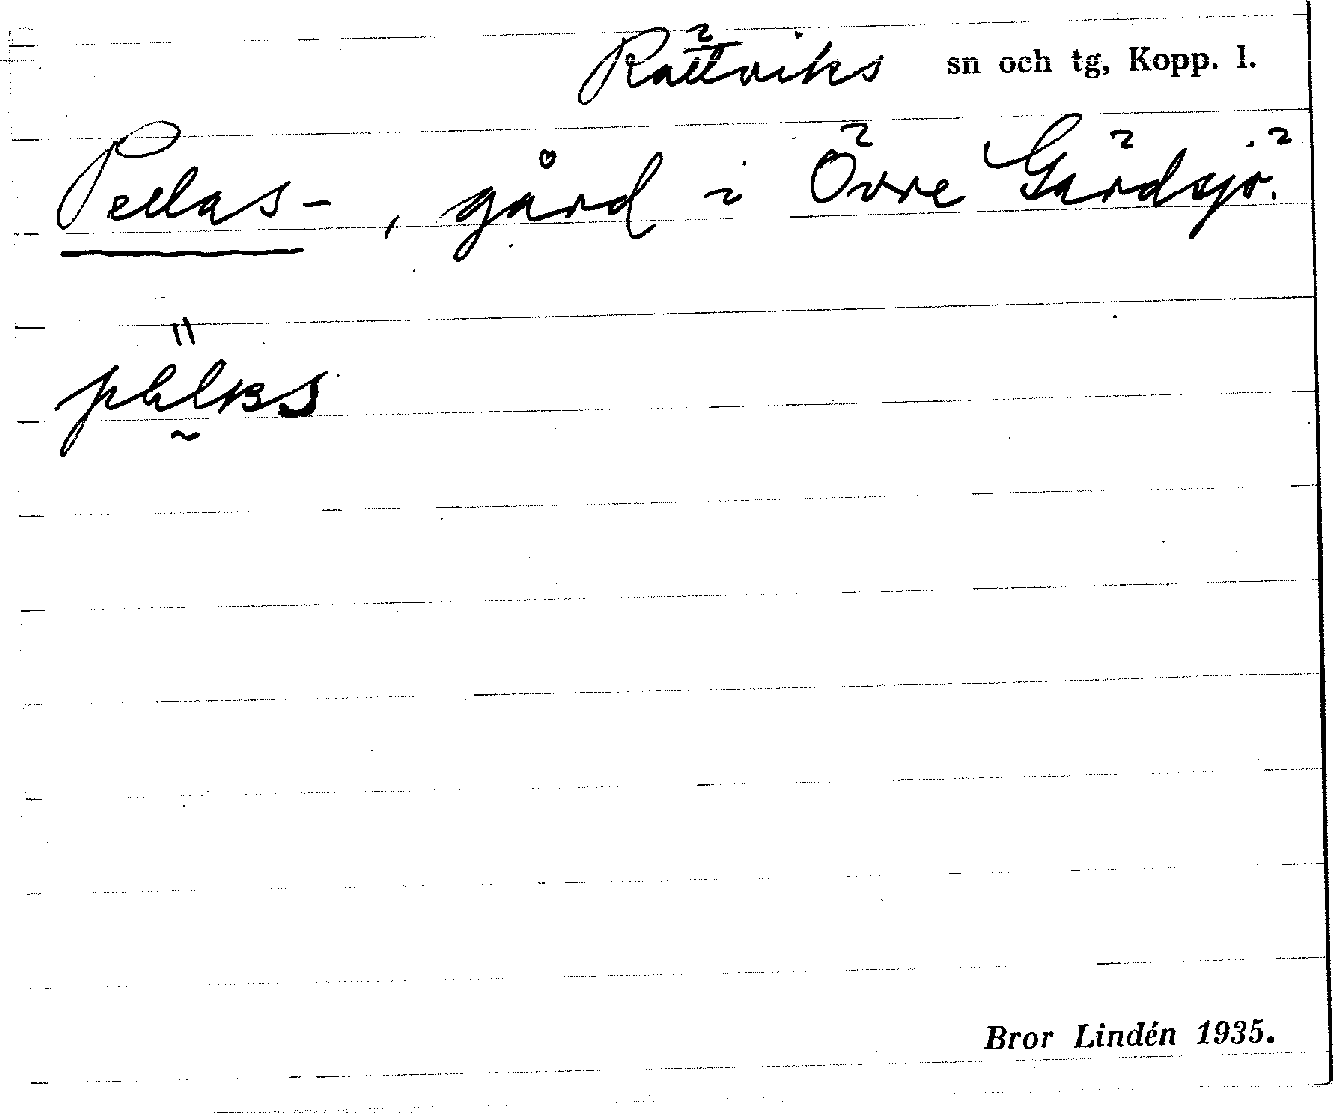 Rättviks sn och tg, Kopp. l.
Pellas-, gård i Övre Gärdsjö.
Bror Lindén 1935.